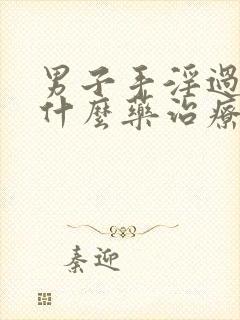 男子手淫過
什麼藥治療
秦迎